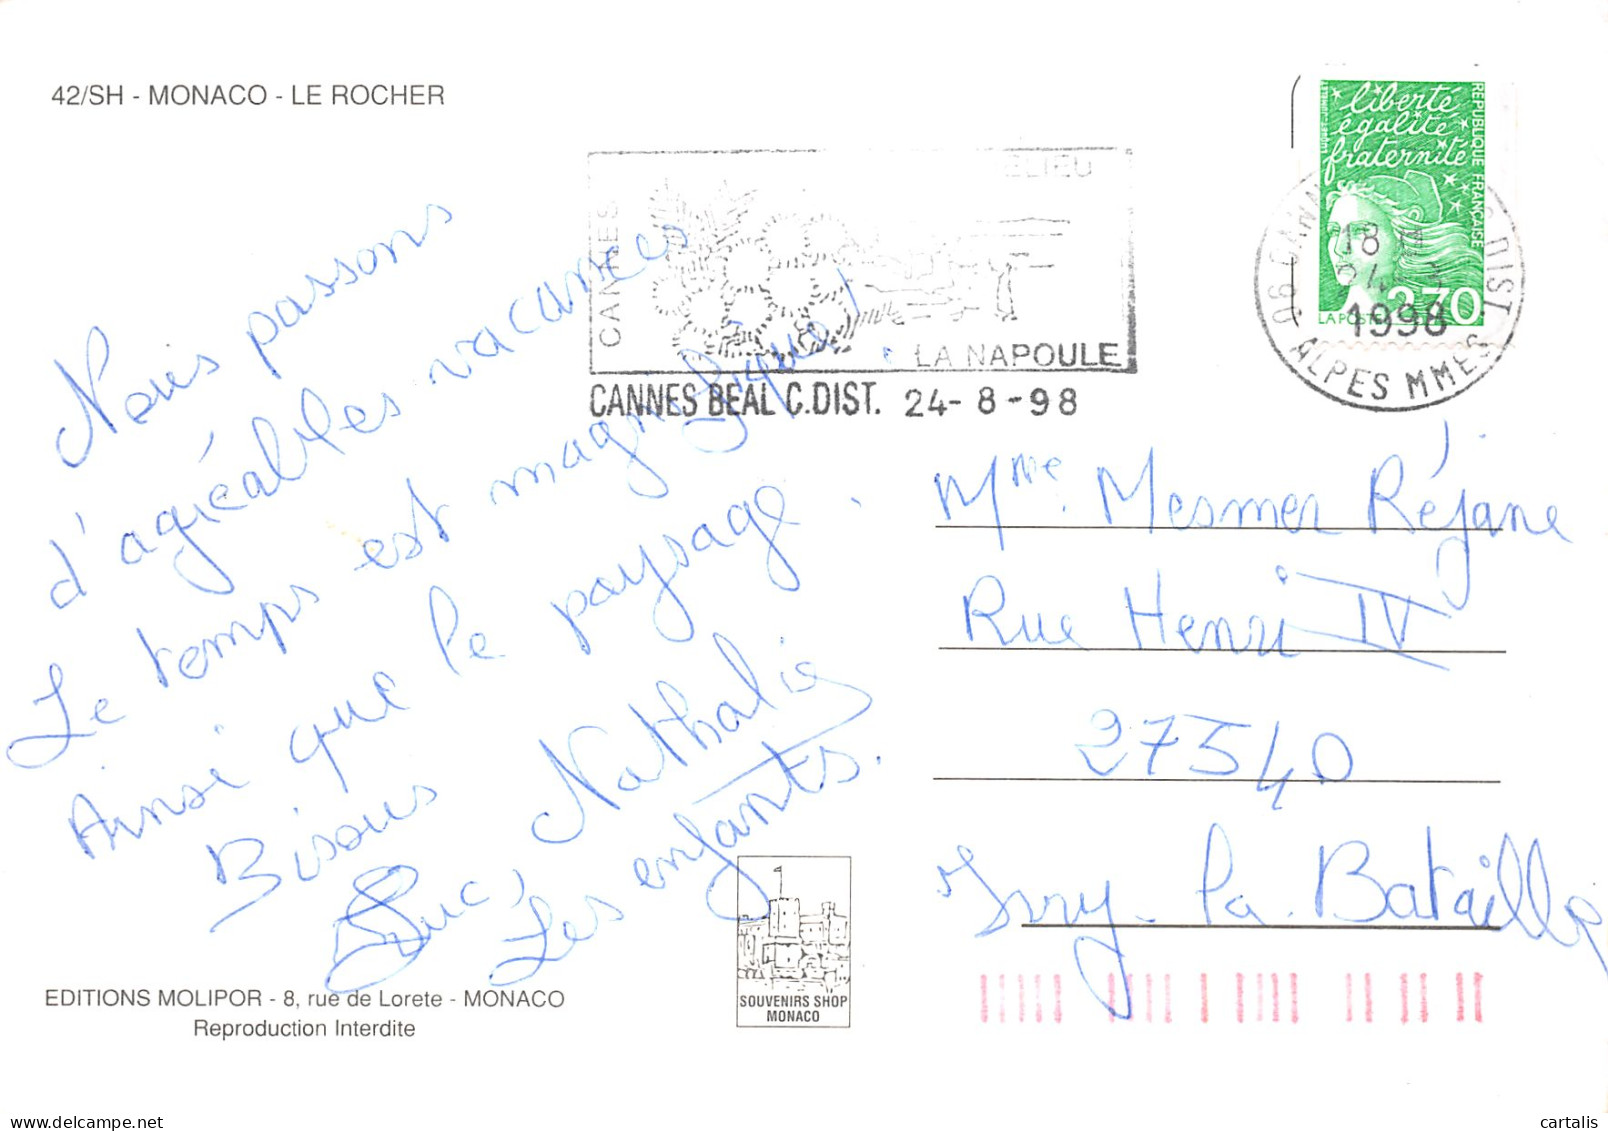 42/SH - MONACO - LE ROCHER
Nous passons
d'agréables vacances
Le temps est magnifique!
Ainsi que le paysage.
Bisous
Luc, Nathalie
Les enfants.
EDITIONS MOLIPOR - 8, rue de Lorete - MONACO
Reproduction Interdite
SOUVENIRS SHOP
MONACO
CANNES
ELIEU
LA NAPOULE
CANNES BEAL C.DIST. 24-8-98
liberté
égalité
fraternité
REPUBLIQUE FRANÇAISE
LA POSTE 2,70
06 CANN DIST.
18 H
24
1998
ALPES MMES
Mme Mesmer Réjane
Rue Henri IV
27540
Ivry-la-Bataille
delcampe.net
cartalis